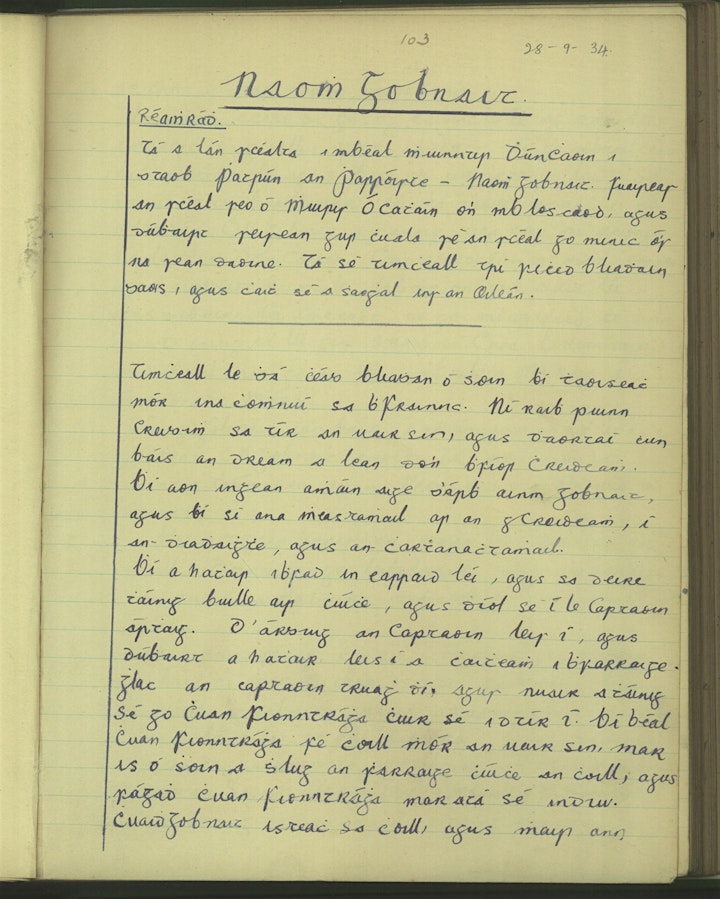 103
28-9-34.
Naoṁ Gobnait.
Réaṁráḋ.
Tá a lán scéalta i mbéal ṁuinntir Ḋúnċaoin i
dtaoḃ Patrún an Pharróiste - Naoṁ Gobnait. Fuaireas
an scéal seo ó Ṁuiris Ó Catáin ó'n mBlascaod, agus
duḃairt seisean gur ċuala sé an scéal go minic ós
na sean daoine. Tá sé timċeall trí fiċid bliaḋain
d'aois, agus ċaiṫ sé a saoġal ins an Oileán.
Timċeall le dá ċéad bliadan ó ṡoin bí taoiseaċ
mór ina ċoṁnuí sa ḃFrainnc. Ní raib puinn
Creidiṁ sa tír an uair sin, agus daortaí ċun
báis an dream a lean do'n ḃfíor Ċreideaṁ.
Bí aon ingean aṁáin aige d'árb ainm Gobnait,
agus bí sí ana ṁeasramail ar an gCreideaṁ, í
an-diadaigṫe, agus an-ċarṫanaċtaṁail.
Ḃí a haṫair iḃfad in earraid léi, agus sa deire
ṫáinig buille air ċúiċe, agus díol sé í le Captaoin
áraig. D'árduig an Captaoin leis í, agus
duḃairt a haṫair leis í a ċaiṫeaṁ iḃfarraige.
Ġlac an captaoin truaġ dí, agus nuair a ṫáinig
sé go Cuan Fionntráġa ċuir sé i dtír í. Ḃí béal
Ċuan Fionntráġa fé ċoill ṁór an uair sin, mar
is ó ṡoin a ṡluig an ḟarraige ċúiċe an ċoill, agus
fágaḋ Ċuan Fionntráġa mar atá sé indiu.
Ċuaiḋ Gobnait isteaċ sa ċoill, agus ṁair ann